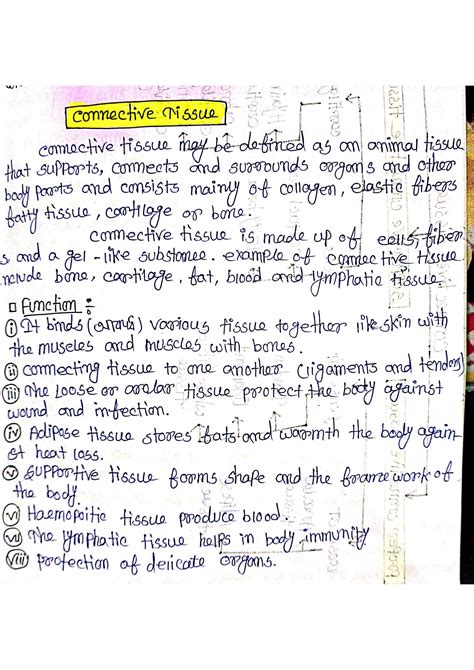 connective Tissue
connective tissue may be defined as an animal tissue
that supports, connects and surrounds organs and other
body parts and consists mainly of collagen, elastic fibers
fatty tissue, cartilage or bone.
connective tissue is made up of cells, fiber
s and a gel-like substance. example of connective tissue
include bone, cartilage, fat, blood and lymphatic tissue.
Function ÷
(i) It binds ( ) various tissue together like skin with
the muscles and muscles with bones.
(ii) connecting tissue to one another (ligaments and tendons)
(iii) The Loose or arolar tissue protect the body against
wound and infection.
(iv) Adipose tissue stores fats and warmth the body again
st heat loss.
(v) Supportive tissue forms shape and the framework of
the body.
(vi) Haemopoitic tissue produce blood.
(vii) The lymphatic tissue helps in body immunity
(viii) protection of delicate organs.